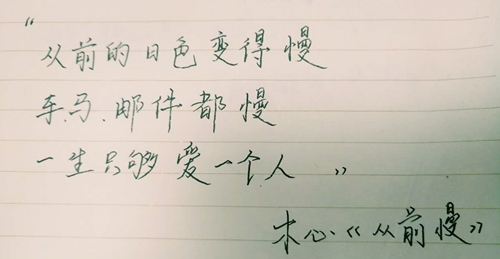 “
从前的日色变得慢
车.马.邮件都慢
一生只够爱一个人 ”
木心.《从前慢》